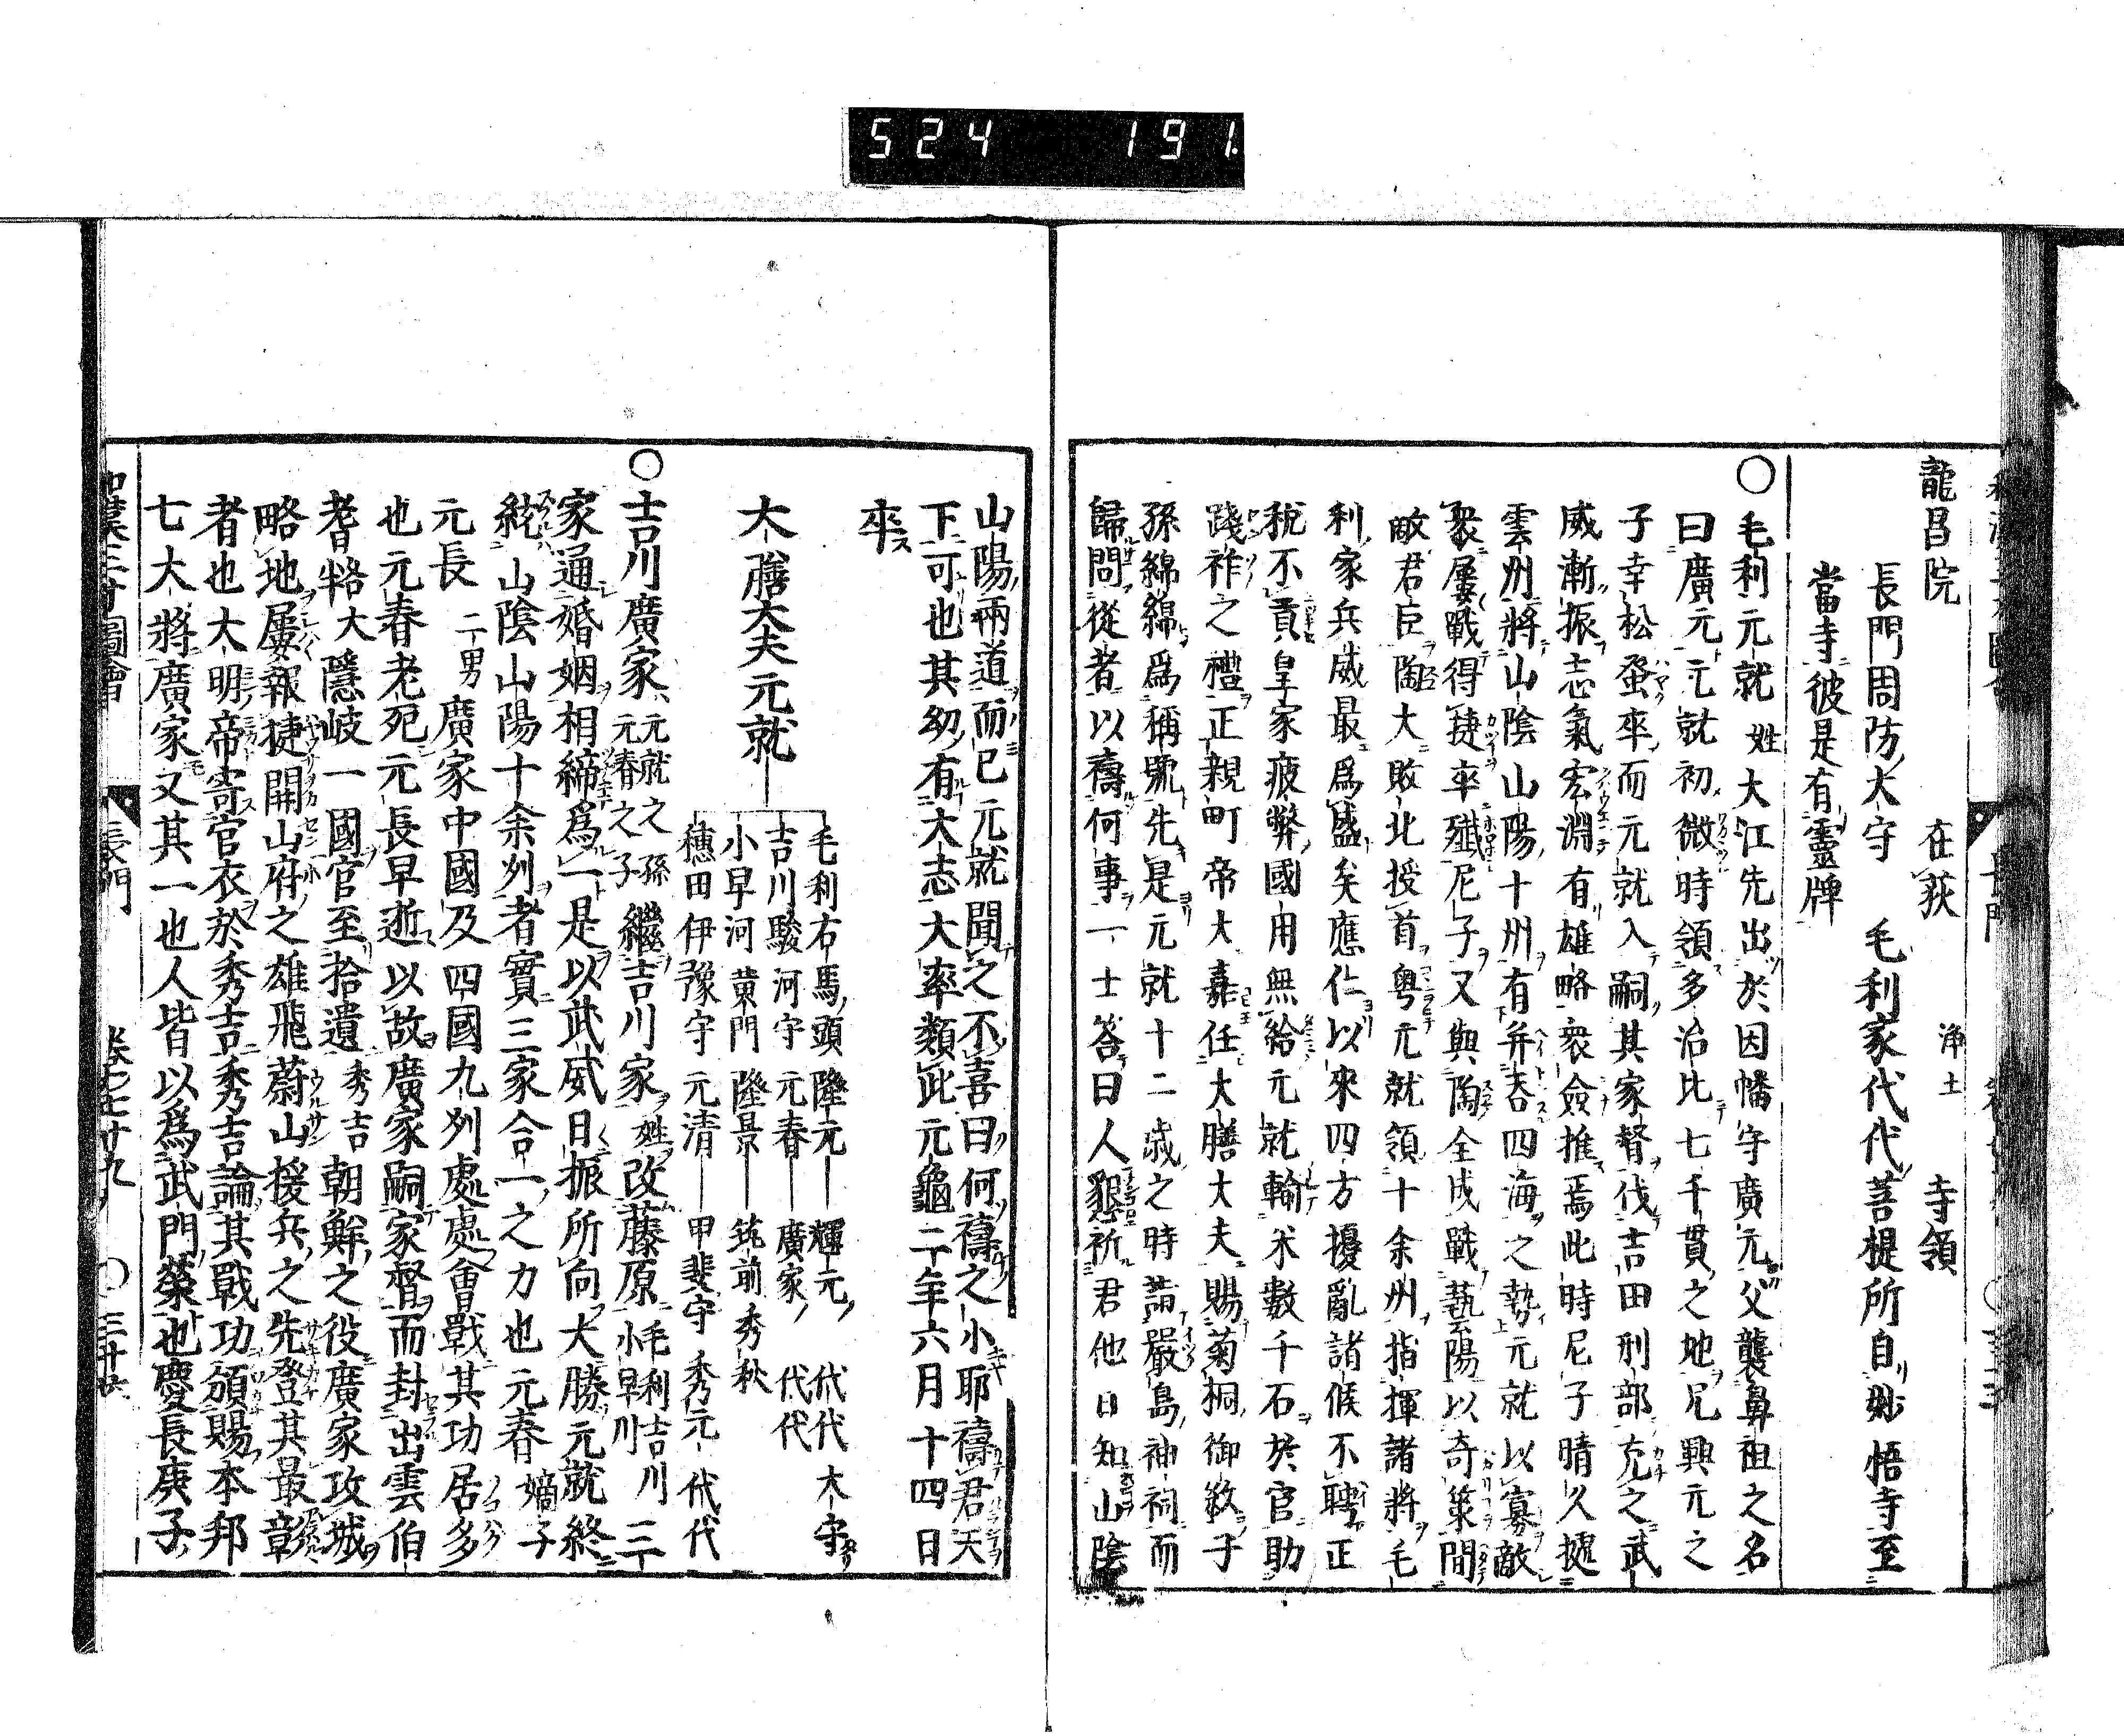 524 191.
龍昌院 在荻 浄土 寺領
長門周防大守 毛利家代代菩提所自妙悟寺至
當寺彼是有靈牌
○毛利元就 姓大江先出於因幡守廣元父襲鼻祖之名
曰廣元元就初微時領多治比七千貫之地兄興元之
子幸松蚤卒而元就入嗣其家督伐吉田刑部充之武
威漸振志氣宏淵有雄略衆僉推焉此時尼子晴久據
雲州將山陰山陽十州有并吞四海之勢元就以寡敵
衆屢戰得捷卒殲尼子又與陶全成戰藝陽以奇策間
敵君臣陶大敗北授首粤元就領十余州指揮諸將毛
利家兵威最爲盛矣應仁以來四方擾亂諸候不聘正
稅不貢皇家疲弊國用無給元就輸米數千石於官助
踐祚之禮正親町帝大嘉任大膳大夫賜菊桐御紋子
孫綿綿爲稱號先是元就十二歳之時詣嚴島神祠而
歸問從者以禱何事一士答曰人懇祈君他日知山陰
山陽兩道而已元就聞之不喜曰何禱之小耶禱君天
下可也其幼有大志大率類此元龜二年六月十四日
卒
大膳大夫元就
毛利右馬頭隆元 輝元 代代大守
吉川駿河守元春 廣家 代代
小早河黄門隆景 筑前秀秋
穗田伊豫守元清 甲斐守秀元 代代
○吉川廣家 元就之孫元春之子 繼吉川家姓改藤原毛利吉川小早川三
家通婚姻相締爲一是以武威日振所向大勝元就終
統山陰山陽十余州者實三家合一之力也元春嫡子
元長 二男廣家中國及四國九州處處會戰其功居多
也元春老死元長早逝以故廣家嗣家督而封出雲伯
耆半 大隱岐一國官至拾遺 秀吉朝鮮之役廣家攻城
略地屢報捷開山府之雄飛蔚山援兵之先登其最彰
者也大明帝寄官衣於秀吉秀吉論其戰功頒賜本邦
七大將廣家又其一也人皆以爲武門榮也慶長庚子
和漢三才圖會 長門 卷七十九 ○三十六